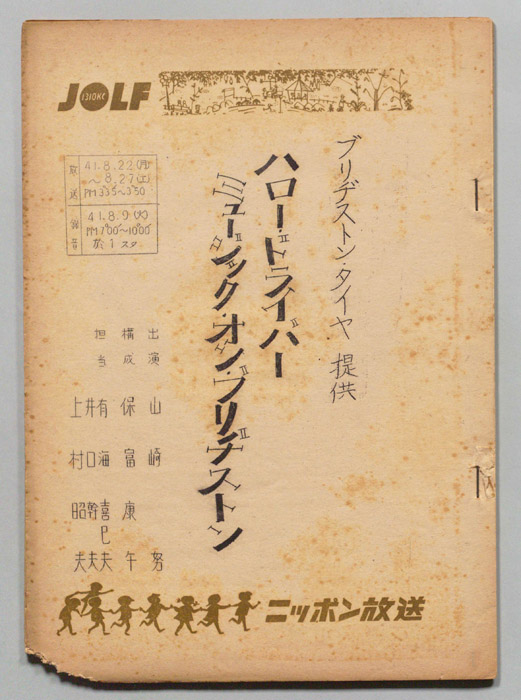 JOLF
1310KC
ブリヂストン・タイヤ 提供
ハロー・ドライバー
ミュージック・オン・ブリヂストン
放送 41.8.22(月)
~8.27(土)
PM3:35~3:50
録音 41.8.9(火)
PM7:00~10:00
於1スタ
出演 山崎努
構成 保富康午
担当 有海喜巳夫
井口幹夫
上村昭夫
ニッポン放送